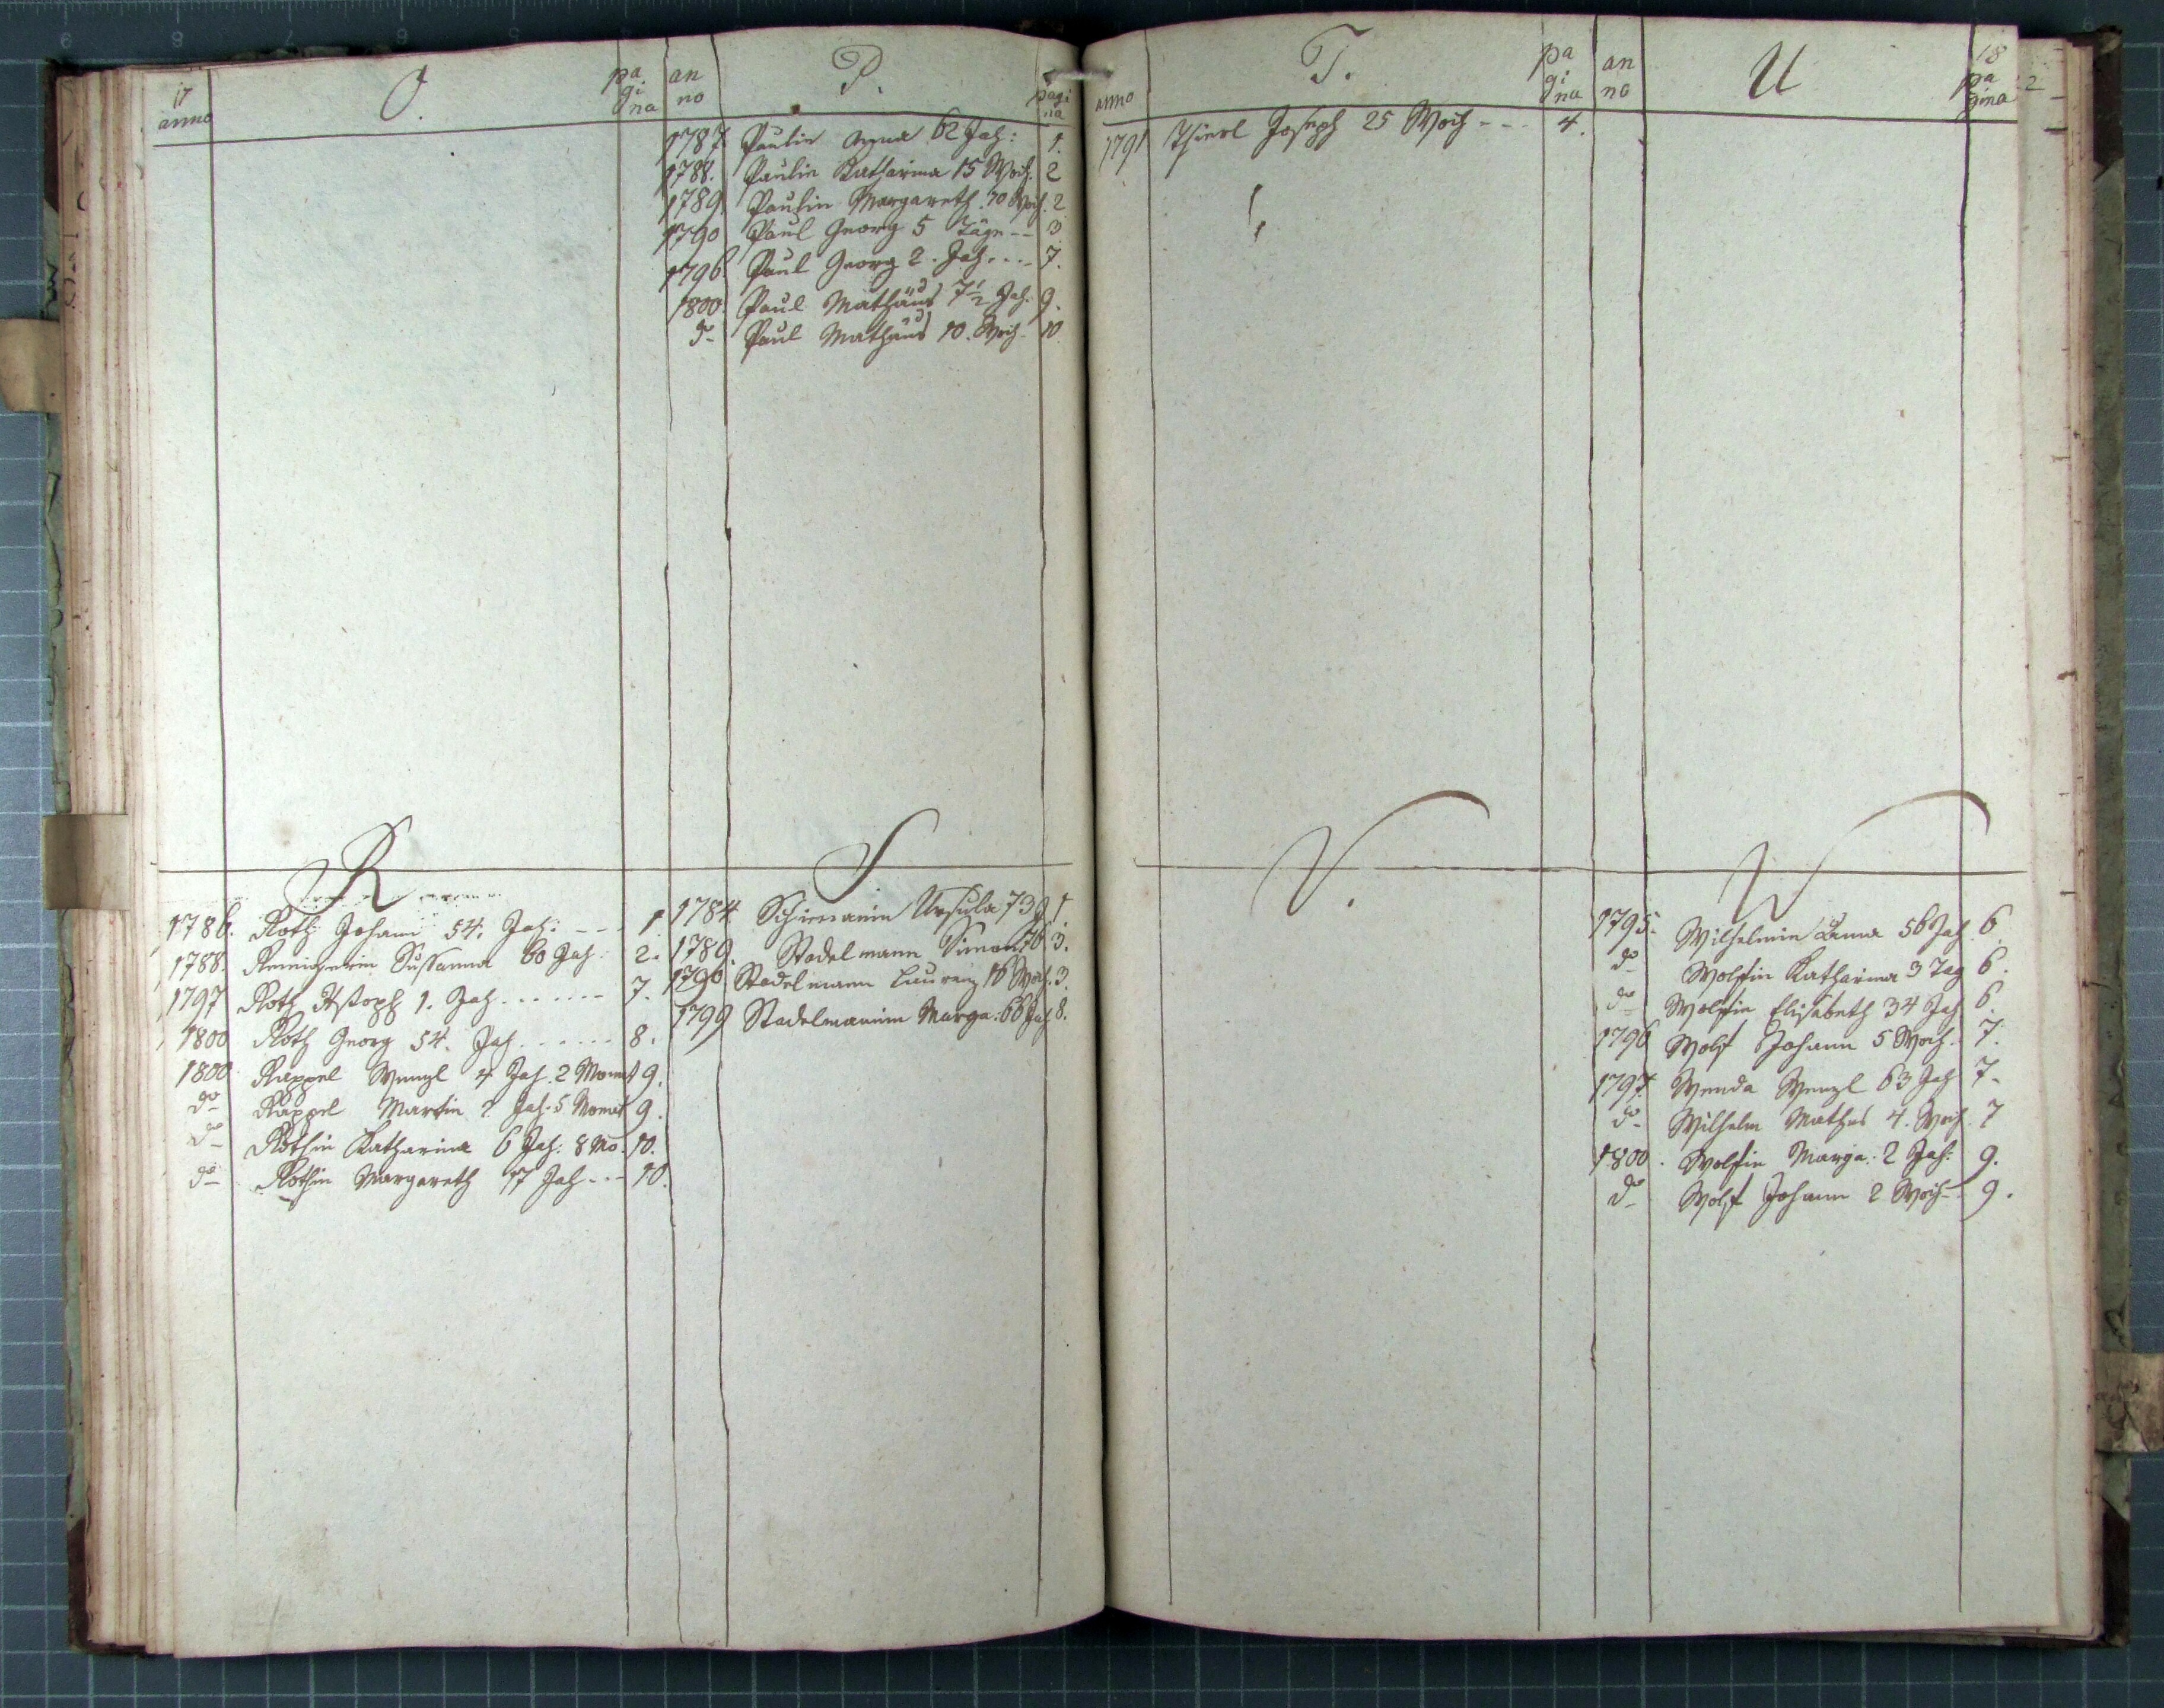 17
anno
O.
pa
gi
na
an
no
P.
pagi
na
1787. Paulin Anna 62 Jah: 1.
1788. Paulin Katharina 15 Woch. 2
1789 Paulin Margareth. 10 Woch. 2
1790 Paul Georg 5 Täge -- 3
1796 Paul Georg 2. Jah. ... 7.
1800. Paul Mathäus 7 1/2 Jah. 9.
do Paul Mathäus 10. Woch. 10
R
1786. Roth Johann 54. Jah: --- 1.
1788. Susanna 60 Jah: 2.
1797 Roth 1. Jah. ...... 7.
1800 Roth Georg 54. Jah. ...... 8.
1800 Rappel Wenzl 4 Jah. 2 Monat 9.
do Rappel Martin 2 Jah. 5 Monat 9.
do Rothin Katharina 6 Jah: 8 Mo. 10.
do Rothin Margareth 17 Jah --- 10.
S
1784 Ursula 73 J 1.
1789. Stadelmann Simon 76 3.
1790. Stadelmann Laurenz 16 Woch. 3.
1799 Stadelmanin Marga: 66 Jah 8.
anno
T.
pa
gi
na
an
no
U
18
pa
gina
1791 Thierl Joseph 25 Woch --- 4.
V.
W
1795. Wilhelmin Anna 56 Jah 6
do Wolfin Katharina 3 Tag 6.
do Wolfin Elisabeth 34 Jah 6.
1796 Wolf Johann 5 Woch. 7.
1797. Wenda Wenzl 63 Jah 7-
do Wilhelm Mathes 4. Woch. 7
1800. Wolfin Marga: 2 Jah: 9.
do Wolf Johann 2 Woch- 9.
2